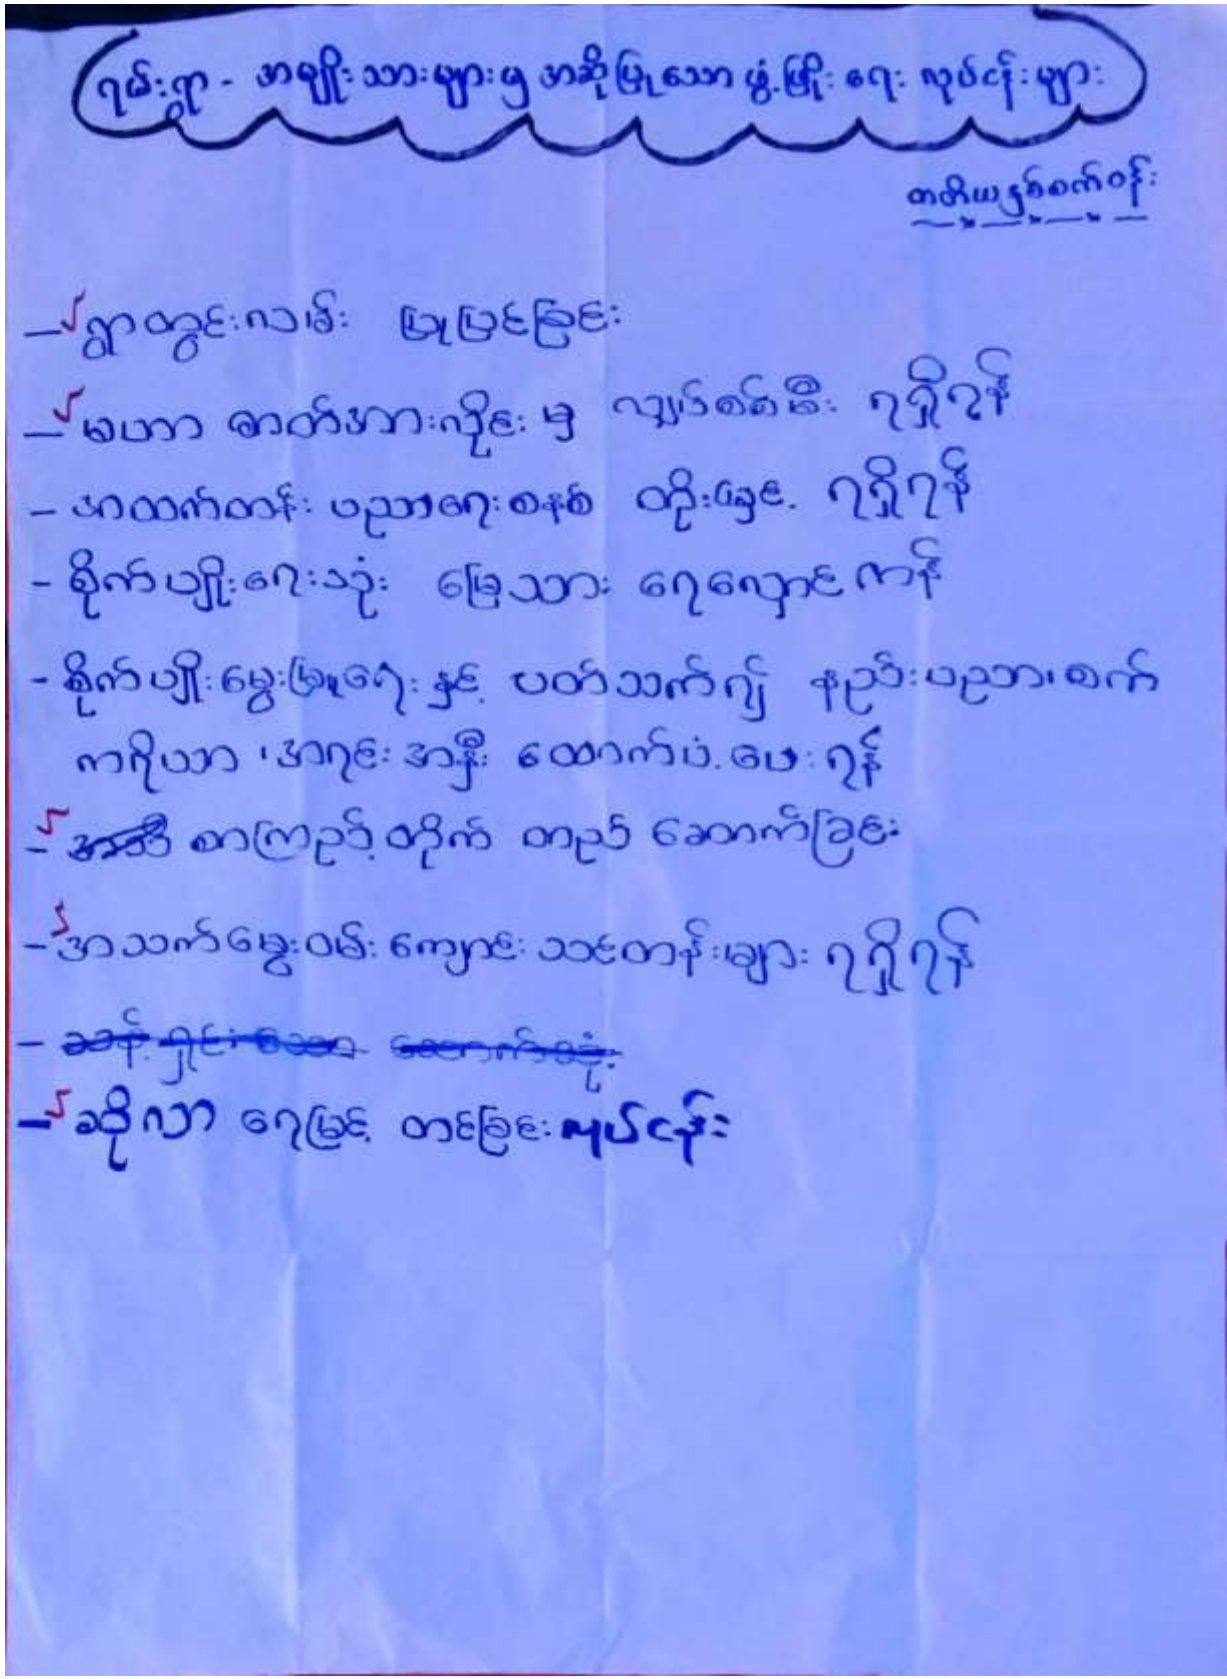 ရမ်းရွာ - အမျိုးသားများမှ အဆိုပြုသော ဖွံ့ဖြိုးရေး လုပ်ငန်းများ
တတိယနှစ်စက်ဝန်း
- ရွာတွင်းလမ်း ပြုပြင်ခြင်း
- မဟာ ဓာတ်အားလိုင်းမှ လျှပ်စစ်မီး ရရှိရန်
- အထက်တန်း ပညာရေးစနစ် တိုးမြှင့် ရရှိရန်
- စိုက်ပျိုးရေးသုံး မြေသား ရေလှောင်ကန်
- စိုက်ပျိုးမွေးမြူရေးနှင့် ပတ်သက်၍ နည်းပညာ၊ စက်
ကရိယာ ၊ အရင်းအနှီး ထောက်ပံ့ပေးရန်
- စာကြည့်တိုက် တည်ဆောက်ခြင်း
- အသက်မွေးဝမ်းကျောင်း သင်တန်းများ ရရှိရန်
- ဆိုလာ ရေမြင့် တင်ခြင်းလုပ်ငန်း